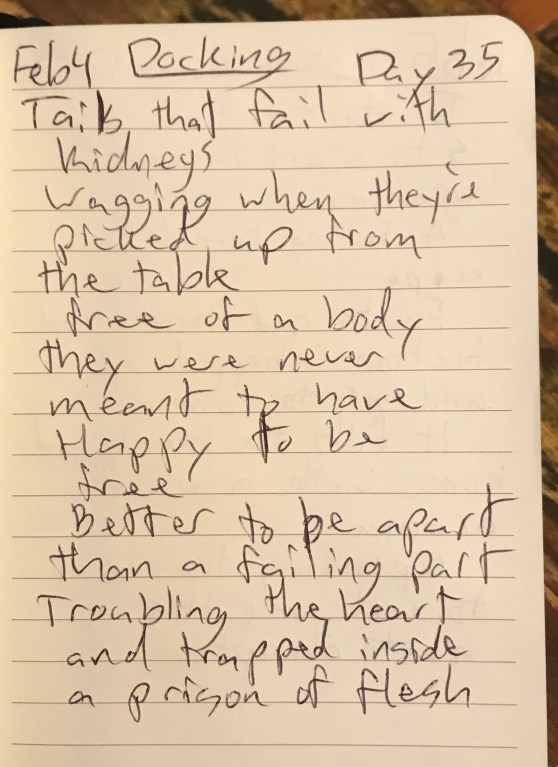 Feb 4 Docking Day 35
Tails that fail with
kidneys
Wagging when they're
picked up from
the table
free of a body
they were never
meant to have
Happy to be
free
Better to be apart
than a failing part
Troubling the heart
and trapped inside
a prison of flesh